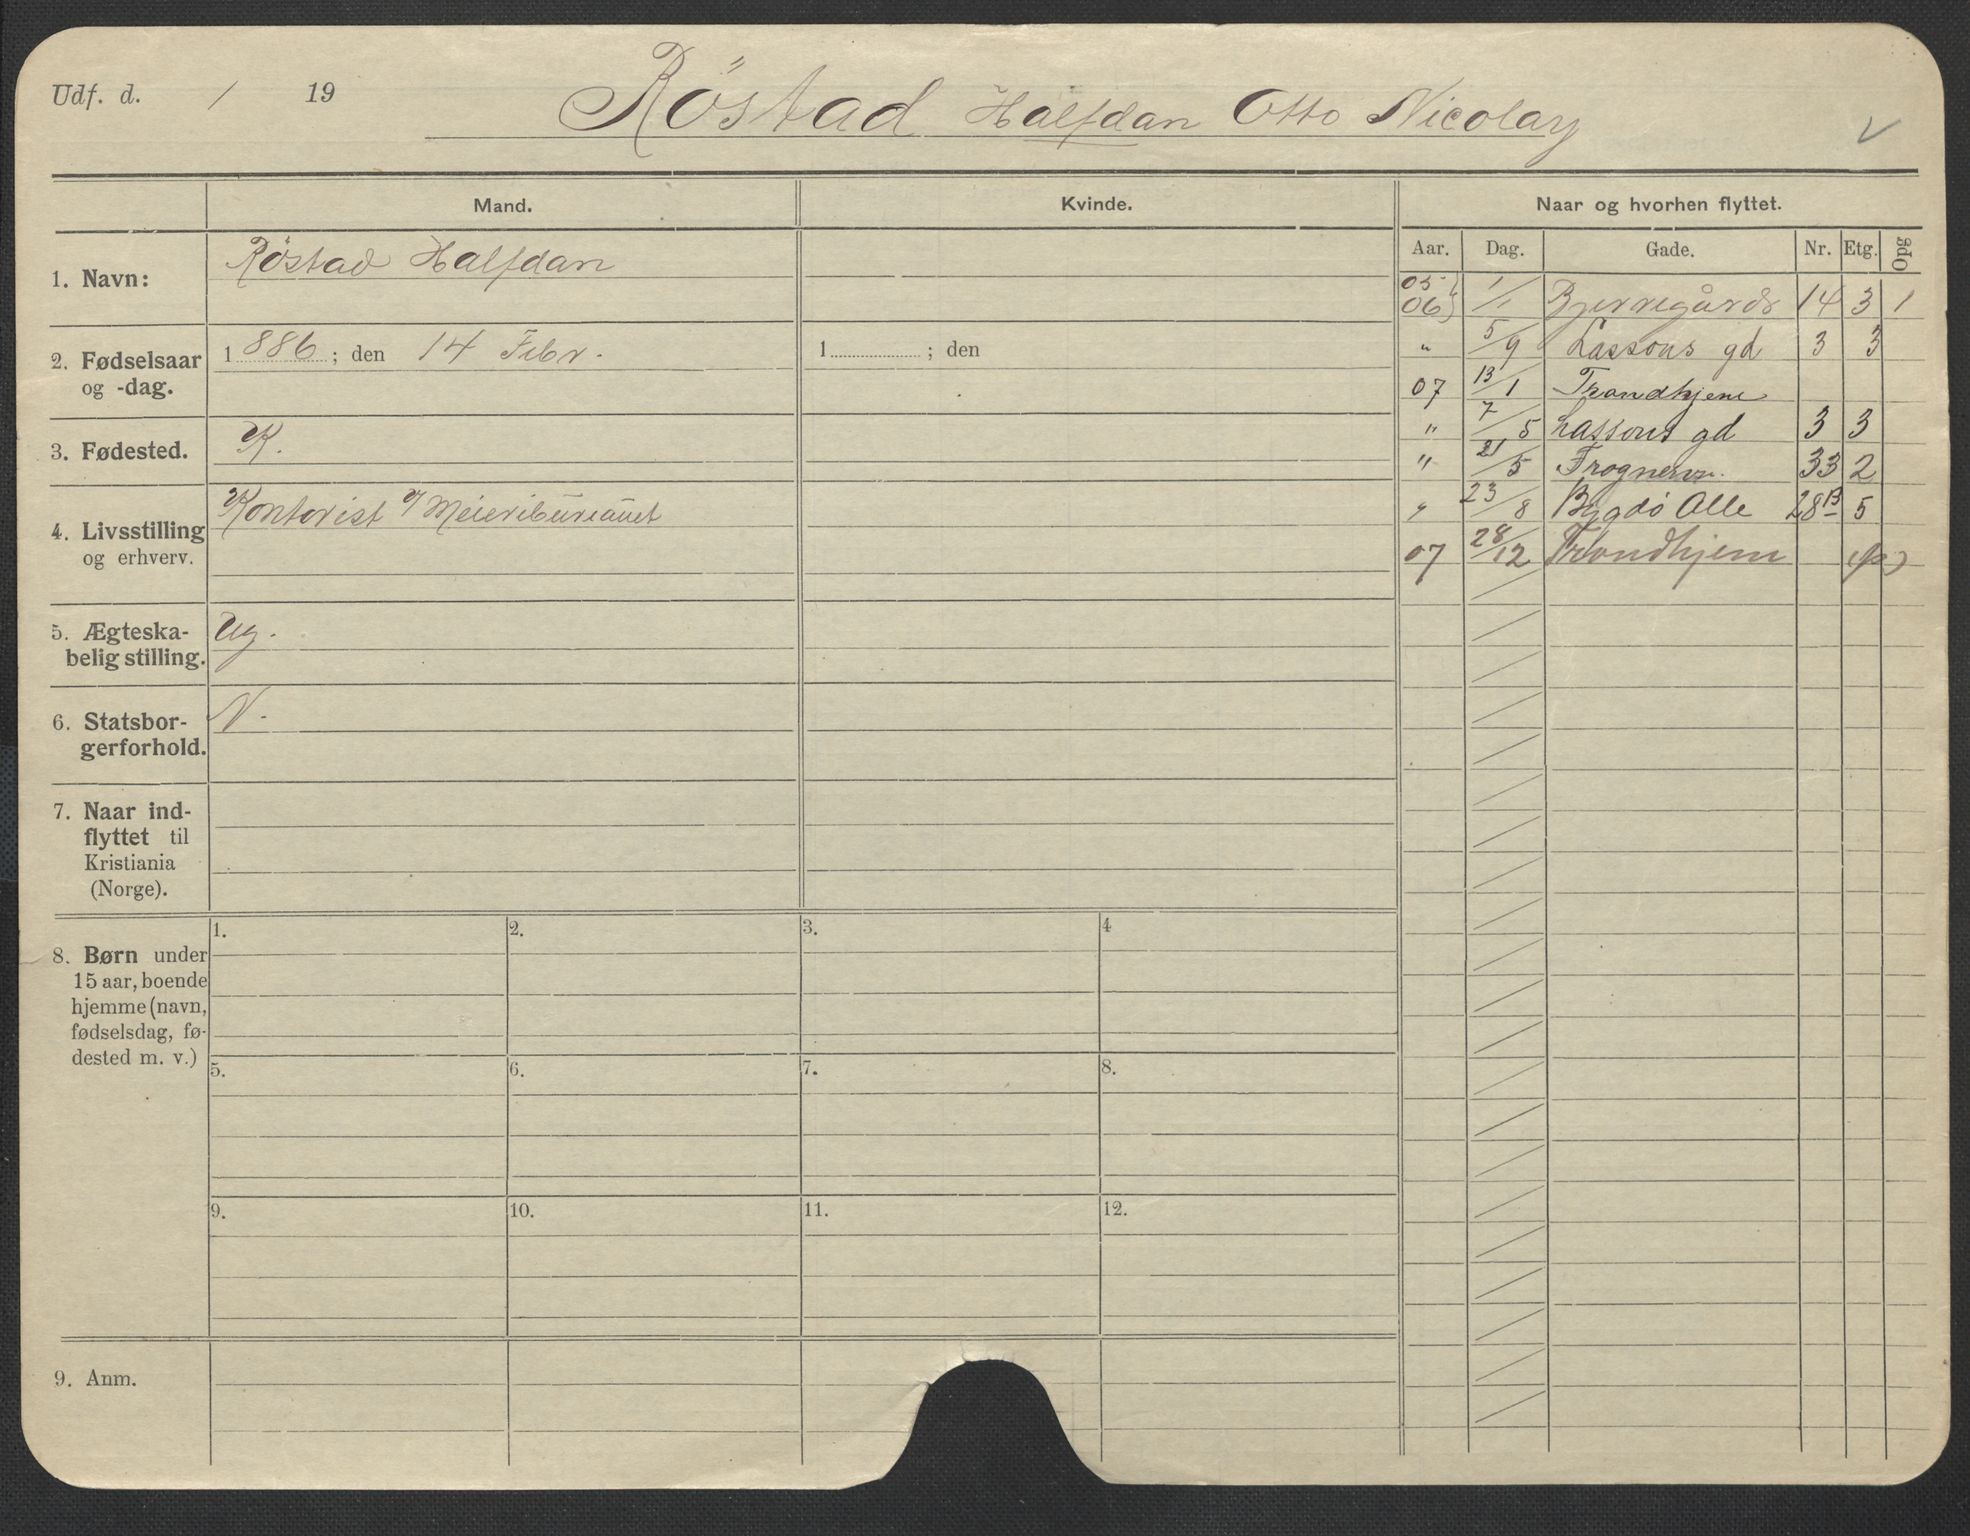 Udf. d. / 19
Röstad Halfdan Otto Nicolay
V
Mand. Kvinde. Naar og hvorhen flyttet.
Aar. Dag. Gade. Nr. Etg. Opg
1. Navn: Röstad Halfdan
2. Fødselsaar og -dag. 1 886 ; den 14 Febr. 1 ; den
3. Fødested. K.
4. Livsstilling og erhverv. Kontorist v/ Meieribureauet
5. Ægteska-
belig stilling. Ug.
6. Statsbor-
gerforhold. N.
7. Naar ind-
flyttet til
Kristiania
(Norge).
8. Børn under
15 aar, boende
hjemme (navn,
fødselsdag, fø-
dested m. v.)
1. 2. 3. 4
5. 6. 7. 8.
9. 10. 11. 12.
9. Anm.
05
06 1/1 Bjerregårds 14 3 1
" 5/9 Lassons gd 3 3
07 13/1 Trondhjem
" 7/5 Lassons gd 3 3
" 21/5 Frognerv. 33 2
" 23/8 Bygdö Alle 28 B 5
07 28/12 Trondhjem